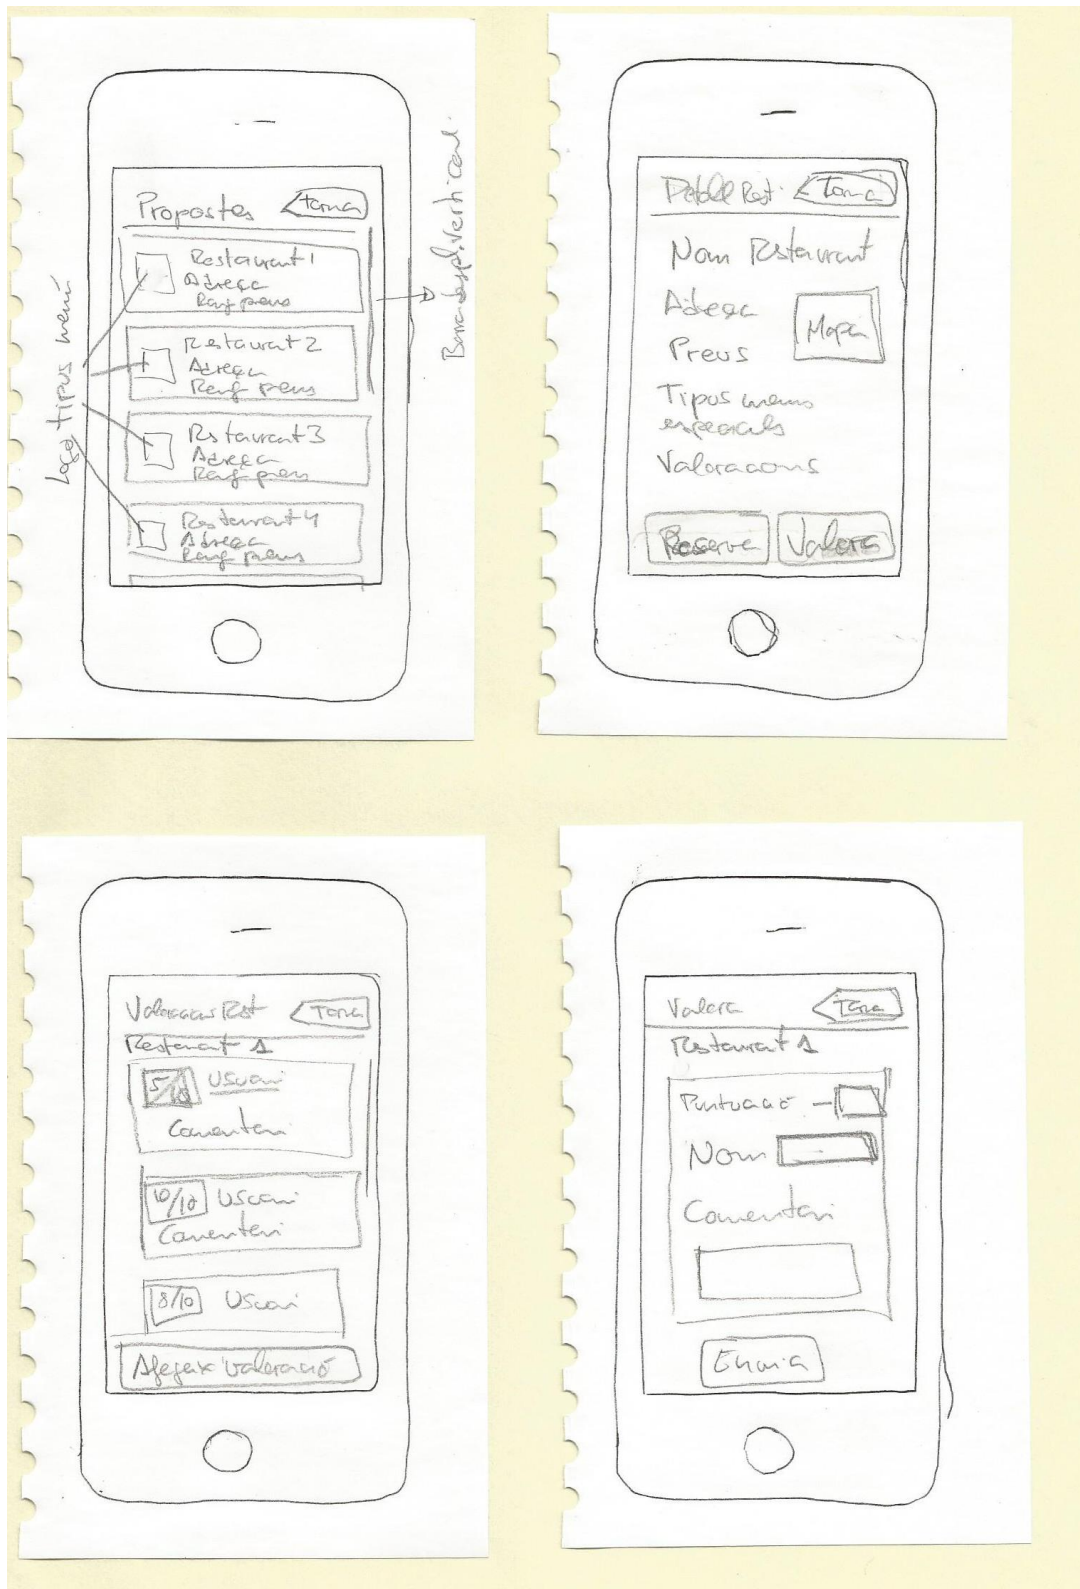 Propostes
Torna
Restaurant 1
Adreça
Rang preus
Restaurant 2
Adreça
Rang preus
Restaurant 3
Adreça
Rang preus
Restaurant 4
Adreça
Rang preus
Logo tipus menú
Barra despl. vertical.
Detall Rest.
Torna
Nom Restaurant
Adreça
Mapa
Preus
Tipus menus
especials
Valoracions
Reserva
Valora
Valoracions Rest
Torna
Restaurant 1
5/10 Usuari
Comentari
10/10 Usuari
Comentari
8/10 Usuari
Afegeix valoració
Valora
Torna
Restaurant 1
Puntuació
Nom
Comentari
Envia